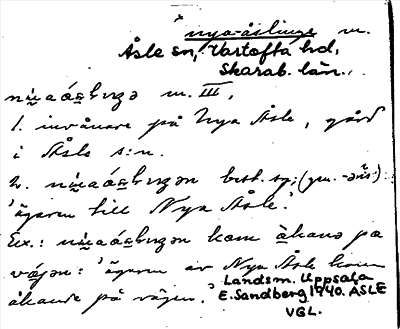 nya-åslinge m.
Åsle sn, Vartofta hd,
Skarab. län.
m. III,
1. invånare på Nya Åsle, gård
i Åsle s:n.
2. best. sg.
'ägaren till Nya Åsle.'
Ex.: kom åkane pa
vägen: 'ägaren av Nya Åsle kom
åkande på vägen.'
Landsm. Uppsala
E. Sandberg 1940. ÅSLE
VGL.